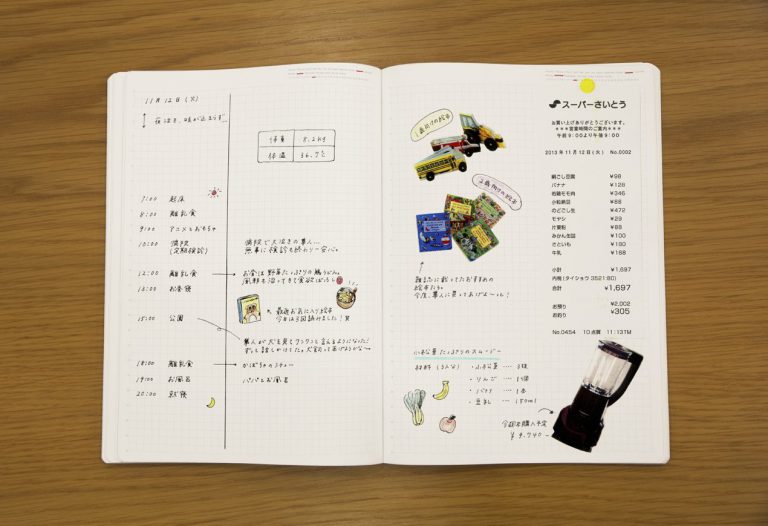 11月12日(火)
夜泣き、咳が止まらず…
体重 8.2kg
体温 36.7℃
7:00 起床
8:00 離乳食
9:00 アニメとおもちゃ
10:00 病院
(定期検診)
病院で大泣きの隼人…
無事に検診も終わり一安心。
12:00 離乳食
お昼は野菜たっぷりの鍋うどん。
風邪も治ってきて食欲ばっちし
13:00 お昼寝
最近お気に入り絵本
今日は3回読みました!
15:00 公園
隼人が犬を見てワンワンと言えるようになった!
18:00 離乳食
かぼちゃのシチュー
19:00 お風呂
パパとお風呂
20:00 就寝
1歳向けの絵本
2歳向けの絵本
雑誌に載ってたおすすめの
絵本たち。
今度、隼人に買ってあげよ〜っと!
小松菜たっぷりのスムージー
材料(3人分)
・小松菜 … 3株
・りんご … 1/2個
・バナナ … 1本
・豆乳 … 150ml
今週末購入予定
¥9,740-
スーパーさいとう
お買い上げありがとうございます。
***営業時間のご案内***
午前9:00より午後9:00
2013年11月12日(火) No.0002
絹ごし豆腐 ¥98
バナナ ¥128
若鶏モモ肉 ¥346
小粒納豆 ¥88
のどごし生 ¥472
モヤシ ¥29
片栗粉 ¥88
みかん缶詰 ¥100
さといも ¥180
牛乳 ¥168
小計 ¥1,697
内税1(タイショウ 3521:80)
合計 ¥1,697
お預り ¥2,002
お釣り ¥305
No.0454 10点買 11:13TM